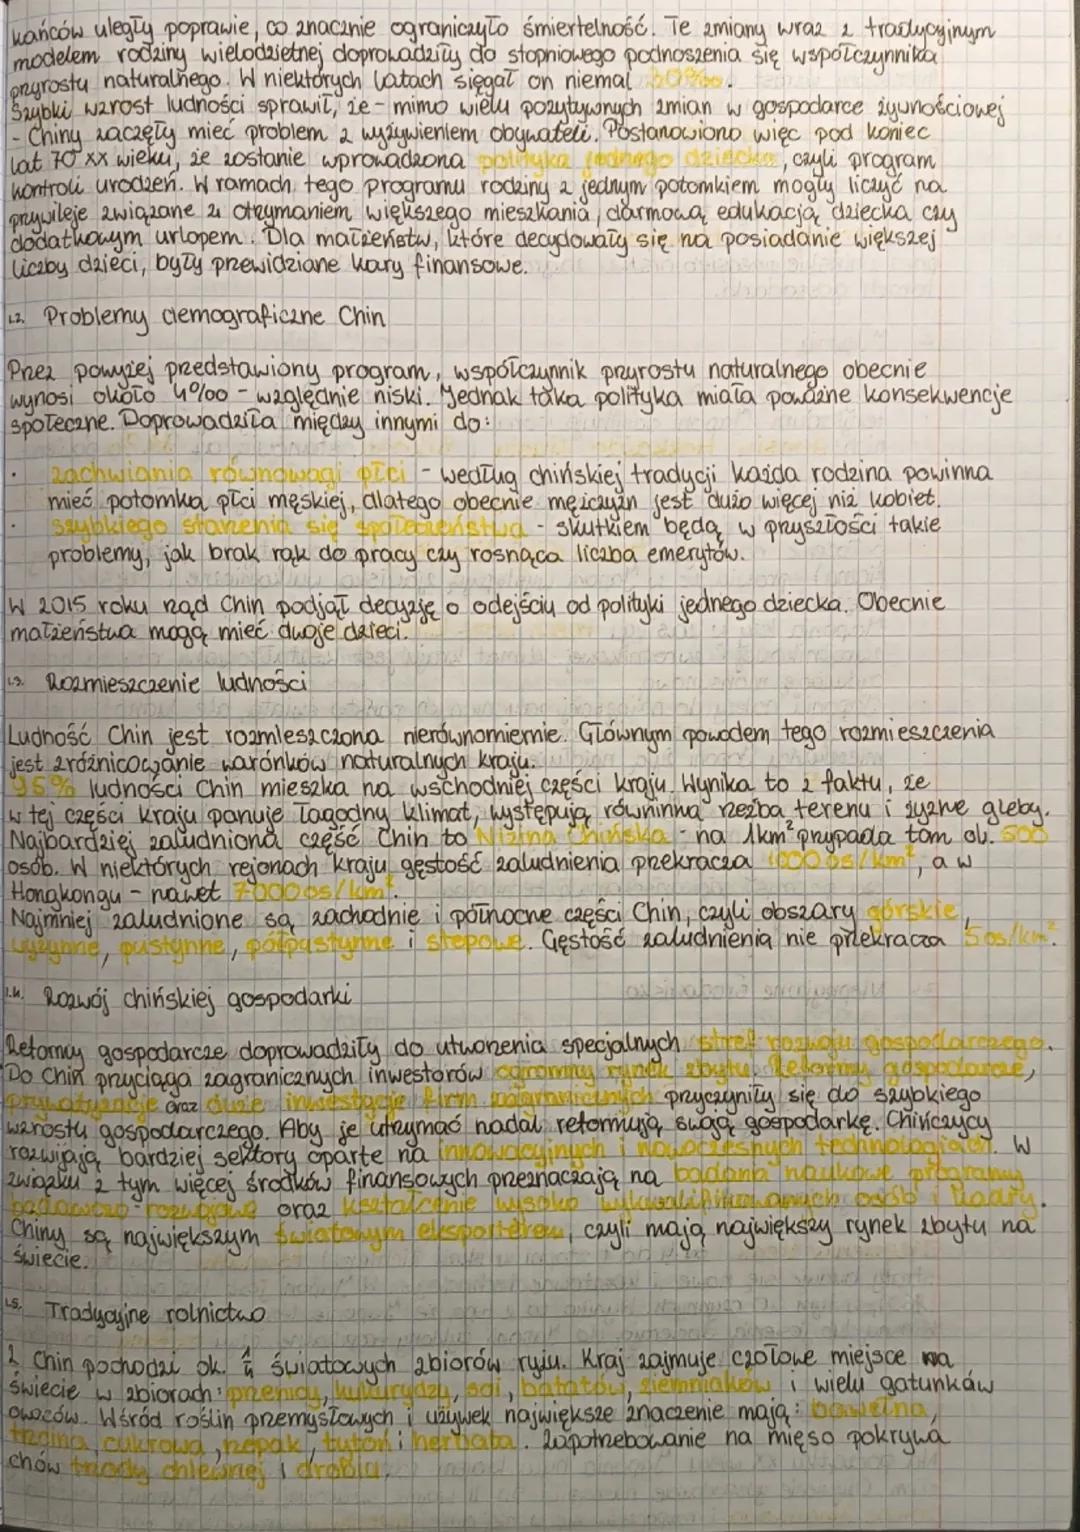 kańców uległy poprawie, co znacznie ograniczyło śmiertelność. Te zmiany wraz z tradycyjnym
modelem rodziny wielodzietnej doprowadziły do stopniowego podnoszenia się współczynnika
przyrostu naturalnego. W niektórych latach sięgał on niemal 30‰.
Szybki wzrost ludności sprawił, że - mimo wielu pozytywnych zmian w gospodarce żywnościowej
- Chiny zaczęły mieć problem z wyżywieniem obywateli. Postanowiono więc pod koniec
lat 70 XX wieku, że zostanie wprowadzona polityka jednego dziecka, czyli program
kontroli urodzeń. W ramach tego programu rodziny z jednym potomkiem mogły liczyć na
przywileje związane z otrzymaniem większego mieszkania, darmową edukacją dziecka czy
dodatkowym urlopem. Dla małżeństw, które decydowały się na posiadanie większej
liczby dzieci, były przewidziane kary finansowe.
1.2. Problemy demograficzne Chin
Przez powyżej przedstawiony program, współczynnik przyrostu naturalnego obecnie
wynosi około 4‰ - względnie niski. Jednak taka polityka miała poważne konsekwencje
społeczne. Doprowadziła między innymi do:
· zachwiania równowagi płci - według chińskiej tradycji każda rodzina powinna
mieć potomka płci męskiej, dlatego obecnie mężczyzn jest dużo więcej niż kobiet.
· szybkiego starzenia się społeczeństwa - skutkiem będą w przyszłości takie
problemy, jak brak rąk do pracy czy rosnąca liczba emerytów.
W 2015 roku rząd Chin podjął decyzję o odejściu od polityki jednego dziecka. Obecnie
małżeństwa mogą mieć dwoje dzieci.
1.3. Rozmieszczenie ludności
Ludność Chin jest rozmieszczona nierównomiernie. Głównym powodem tego rozmieszczenia
jest zróżnicowanie warónków naturalnych kraju.
95% ludności Chin mieszka na wschodniej części kraju. Wynika to z faktu, że
w tej części kraju panuje łagodny klimat, występują równinna rzeźba terenu i żyzne gleby.
Najbardziej zaludnioną część Chin to Nizina Chińska - na 1km² przypada tam ok. 500
osób. W niektórych rejonach kraju gęstość zaludnienia przekracza 1000 os/km², a w
Hongkongu - nawet 7000 os/km².
Najmniej zaludnione są zachodnie i północne części Chin, czyli obszary górskie,
wyżynne, pustynne, półpustynne i stepowe. Gęstość zaludnienia nie przekracza 5 os/km².
1.4. Rozwój chińskiej gospodarki
Reformy gospodarcze doprowadziły do utworzenia specjalnych stref rozwoju gospodarczego.
Do Chin przyciąga zagranicznych inwestorów ogromny rynek zbytu. Reformy gospodarcze,
prywatyzacje oraz duże inwestycje firm zagranicznych przyczyniły się do szybkiego
wzrostu gospodarczego. Aby je utrzymać nadal reformują swoją gospodarkę. Chińczycy
rozwijają bardziej sektory oparte na innowacyjnych i nowoczesnych technologiach. W
związku z tym więcej środków finansowych przeznaczają na badania naukowe programy
badawczo-rozwojowe oraz kształcenie wysoko wykwalifikowanych osób i kadry.
Chiny są największym światowym eksporterem, czyli mają największy rynek zbytu na
świecie.
1.5. Tradycyjne rolnictwo
Z Chin pochodzi ok. światowych zbiorów ryżu. Kraj zajmuje czołowe miejsce na
świecie w zbiorach: pszenicy, kukurydzy, soi, batatów, ziemniaków i wielu gatunków
owoców. Wśród roślin przemysłowych i używek największe znaczenie mają: bawełna,
trzcina cukrowa, rzepak, tytoń i herbata. Zapotrzebowanie na mięso pokrywa
chów trzody chlewnej i drobiu.